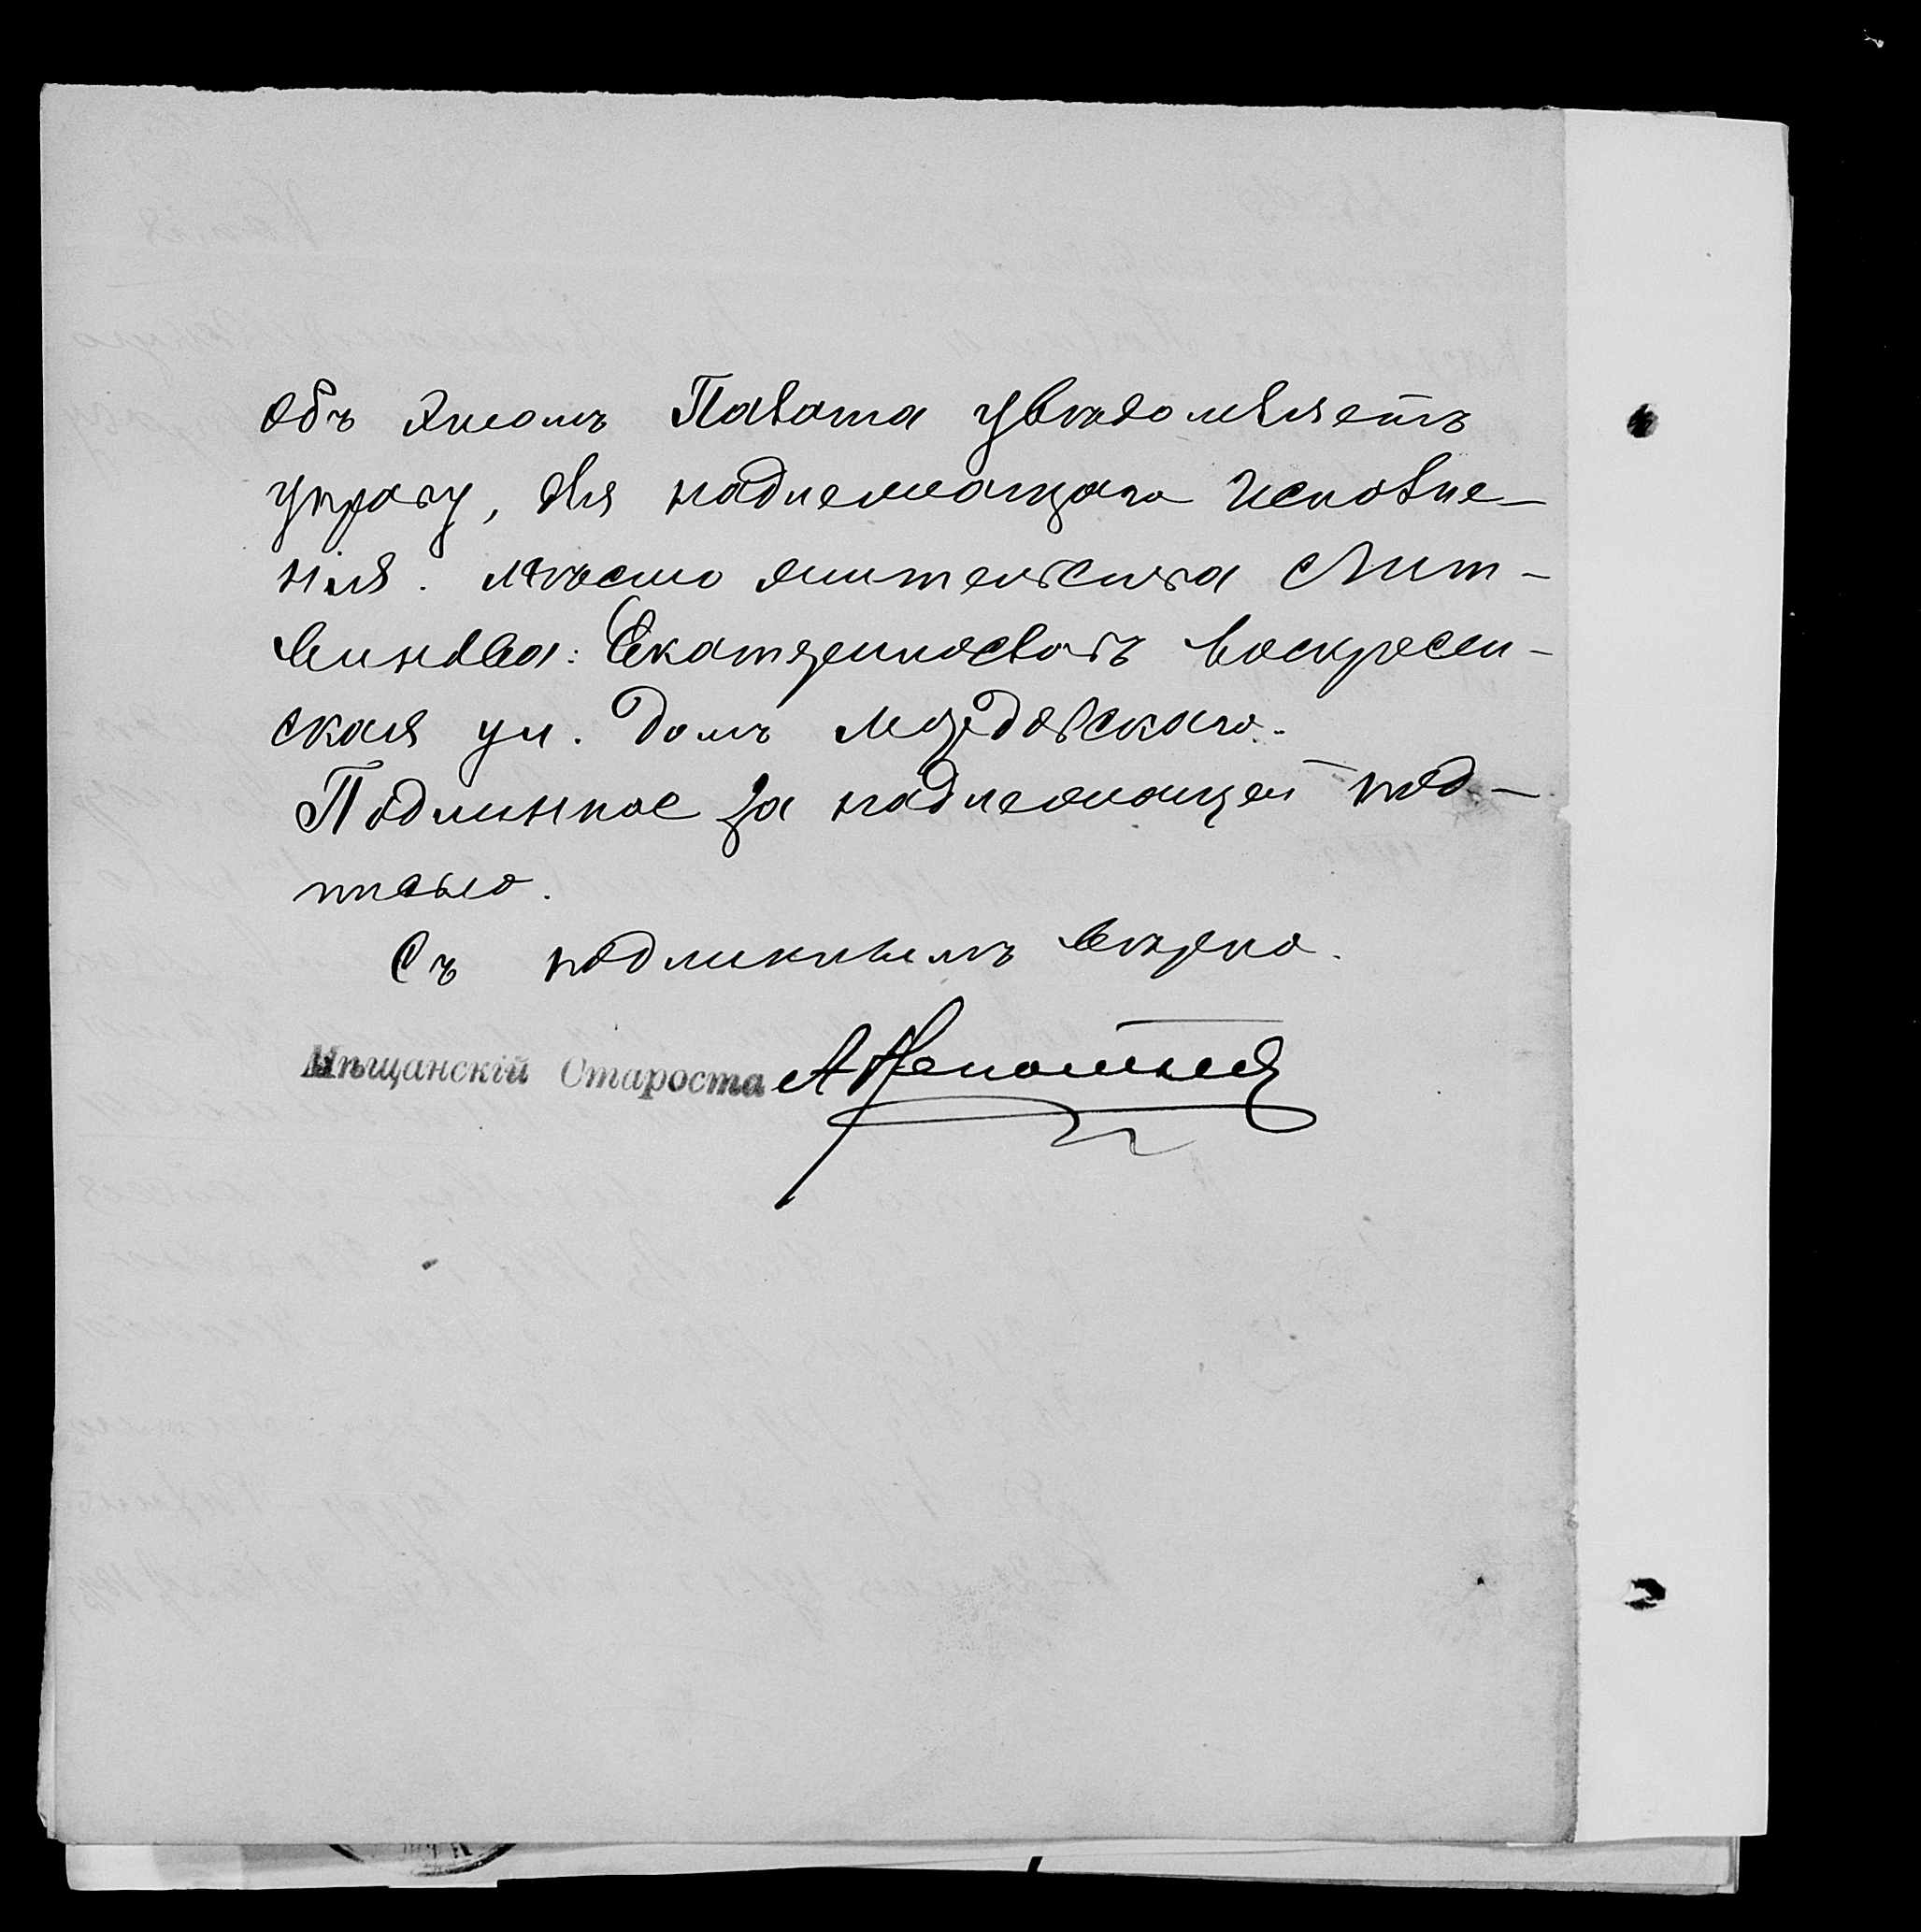 Объ этомъ Палата увѣдомляетъ
управу, для надлежащаго исполне-
нія. Мѣсто жительства Лит-
винова: Екатеринославъ Воскресен-
ская ул. домъ
Подлинное за надлежащей под-
писью.
Съ подлиннымъ вѣрно.
Мѣщанскій Староста